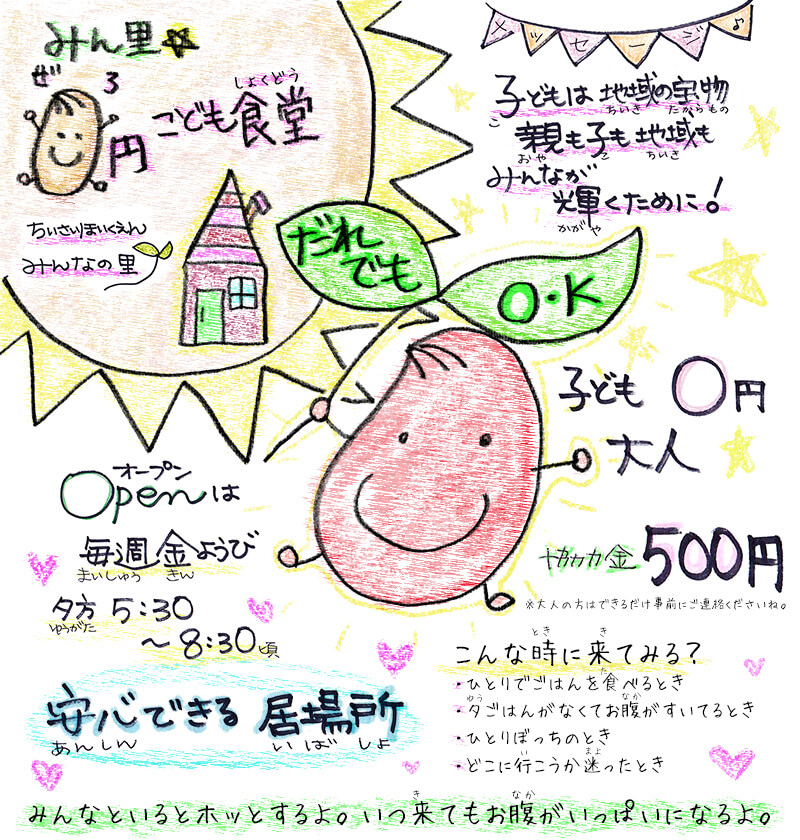 みん里☆
ぜろ
円 こども食堂
しょくどう
ちいさいほいくえん
みんなの里
だれでも
O・K
メッセージ♪
子どもは 地域の宝物
こ ちいき たからもの
親も子も 地域も
おや こ ちいき
みんなが
輝くために!
かがや
子ども 0円
大人
協力金 500円
※大人の方はできるだけ事前にご連絡くださいね。
オープン
Openは
毎週金ようび
まいしゅう きん
夕方 5:30
ゆうがた
～8:30頃
安心できる 居場所
あんしん いばしょ
とき き
こんな時に来てみる?
た
・ひとりでごはんを食べるとき
ゆう なか
・夕ごはんがなくてお腹がすいてるとき
・ひとりぼっちのとき
い まよ
・どこに行こうか迷ったとき
き なか
みんなといるとホッとするよ。いつ来てもお腹がいっぱいになるよ。